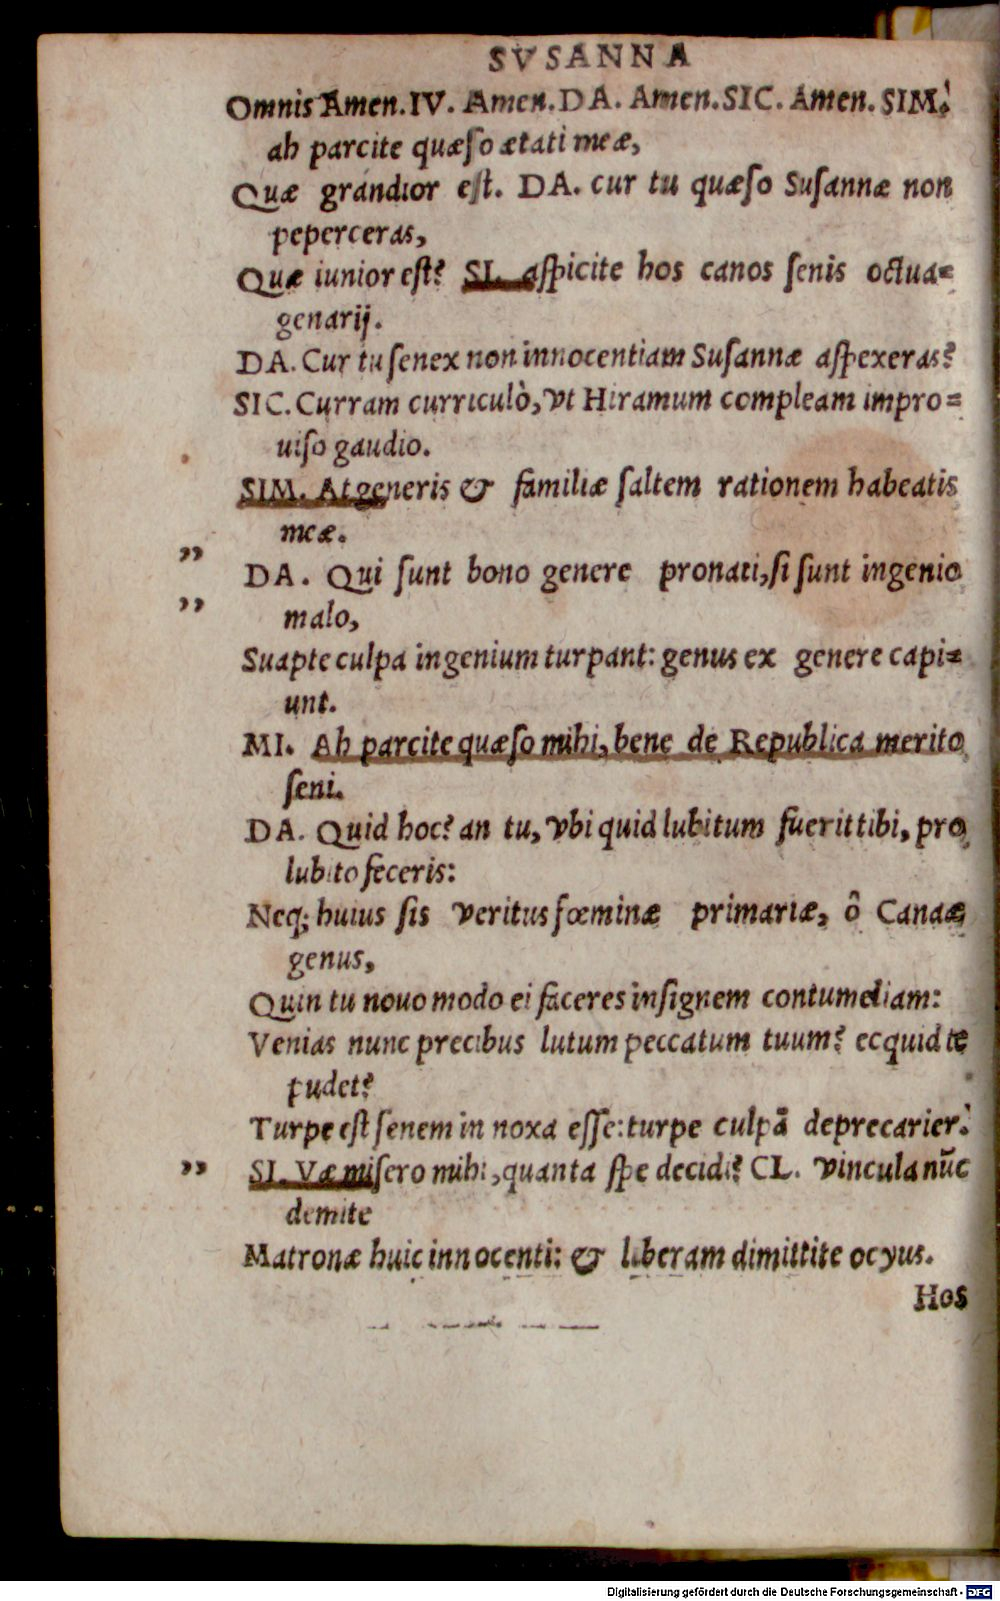 SVSANNA
Omnis Amen. IV. Amen. DA. Amen. SIC. Amen. SIM.
ah parcite quæſo ætati meæ,
Quæ grandior eſt. DA. cur tu quæſo Suſannæ non
peperceras,
Quæ iunior eſt? SI. aſpicite hos canos ſenis octua=
genarij.
DA. Cur tu ſenex non innocentiam Suſannæ aſpexeras?
SIC. Curram curriculò, vt Hiramum compleam impro=
uiſo gaudio.
SIM. At generis & familiæ ſaltem rationem habeatis
meæ.
" DA. Qui ſunt bono genere pronati, ſi ſunt ingenio
" malo,
Suapte culpa ingenium turpant: genus ex genere capi=
unt.
MI. Ah parcite quæſo mihi, bene de Republica merito
ſeni.
DA. Quid hoc? an tu, vbi quid lubitum fuerit tibi, pro
lubito feceris:
Neq; huius ſis veritus fœminæ primariæ, ô Canaæ
genus,
Quin tu nouo modo ei faceres inſignem contumeliam:
Venias nunc precibus lutum peccatum tuum? ecquid te
pudet?
Turpe eſt ſenem in noxa eſſe: turpe culpā deprecarier.
" SI. Væ miſero mihi, quanta ſpe decidi? CL. vincula nūc
demite
Matronæ huic innocenti: & liberam dimittite ocyus.
Hos
Digitalisierung gefördert durch die Deutsche Forschungsgemeinschaft - DFG